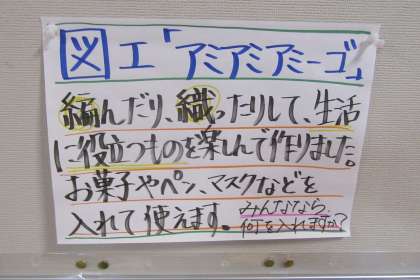 図工「アミアミアミーゴ」
編んだり、織ったりして、生活
に役立つものを楽しんで作りました。
お菓子やペン、マスクなどを
入れて使えます。
みんななら
何を入れますか?